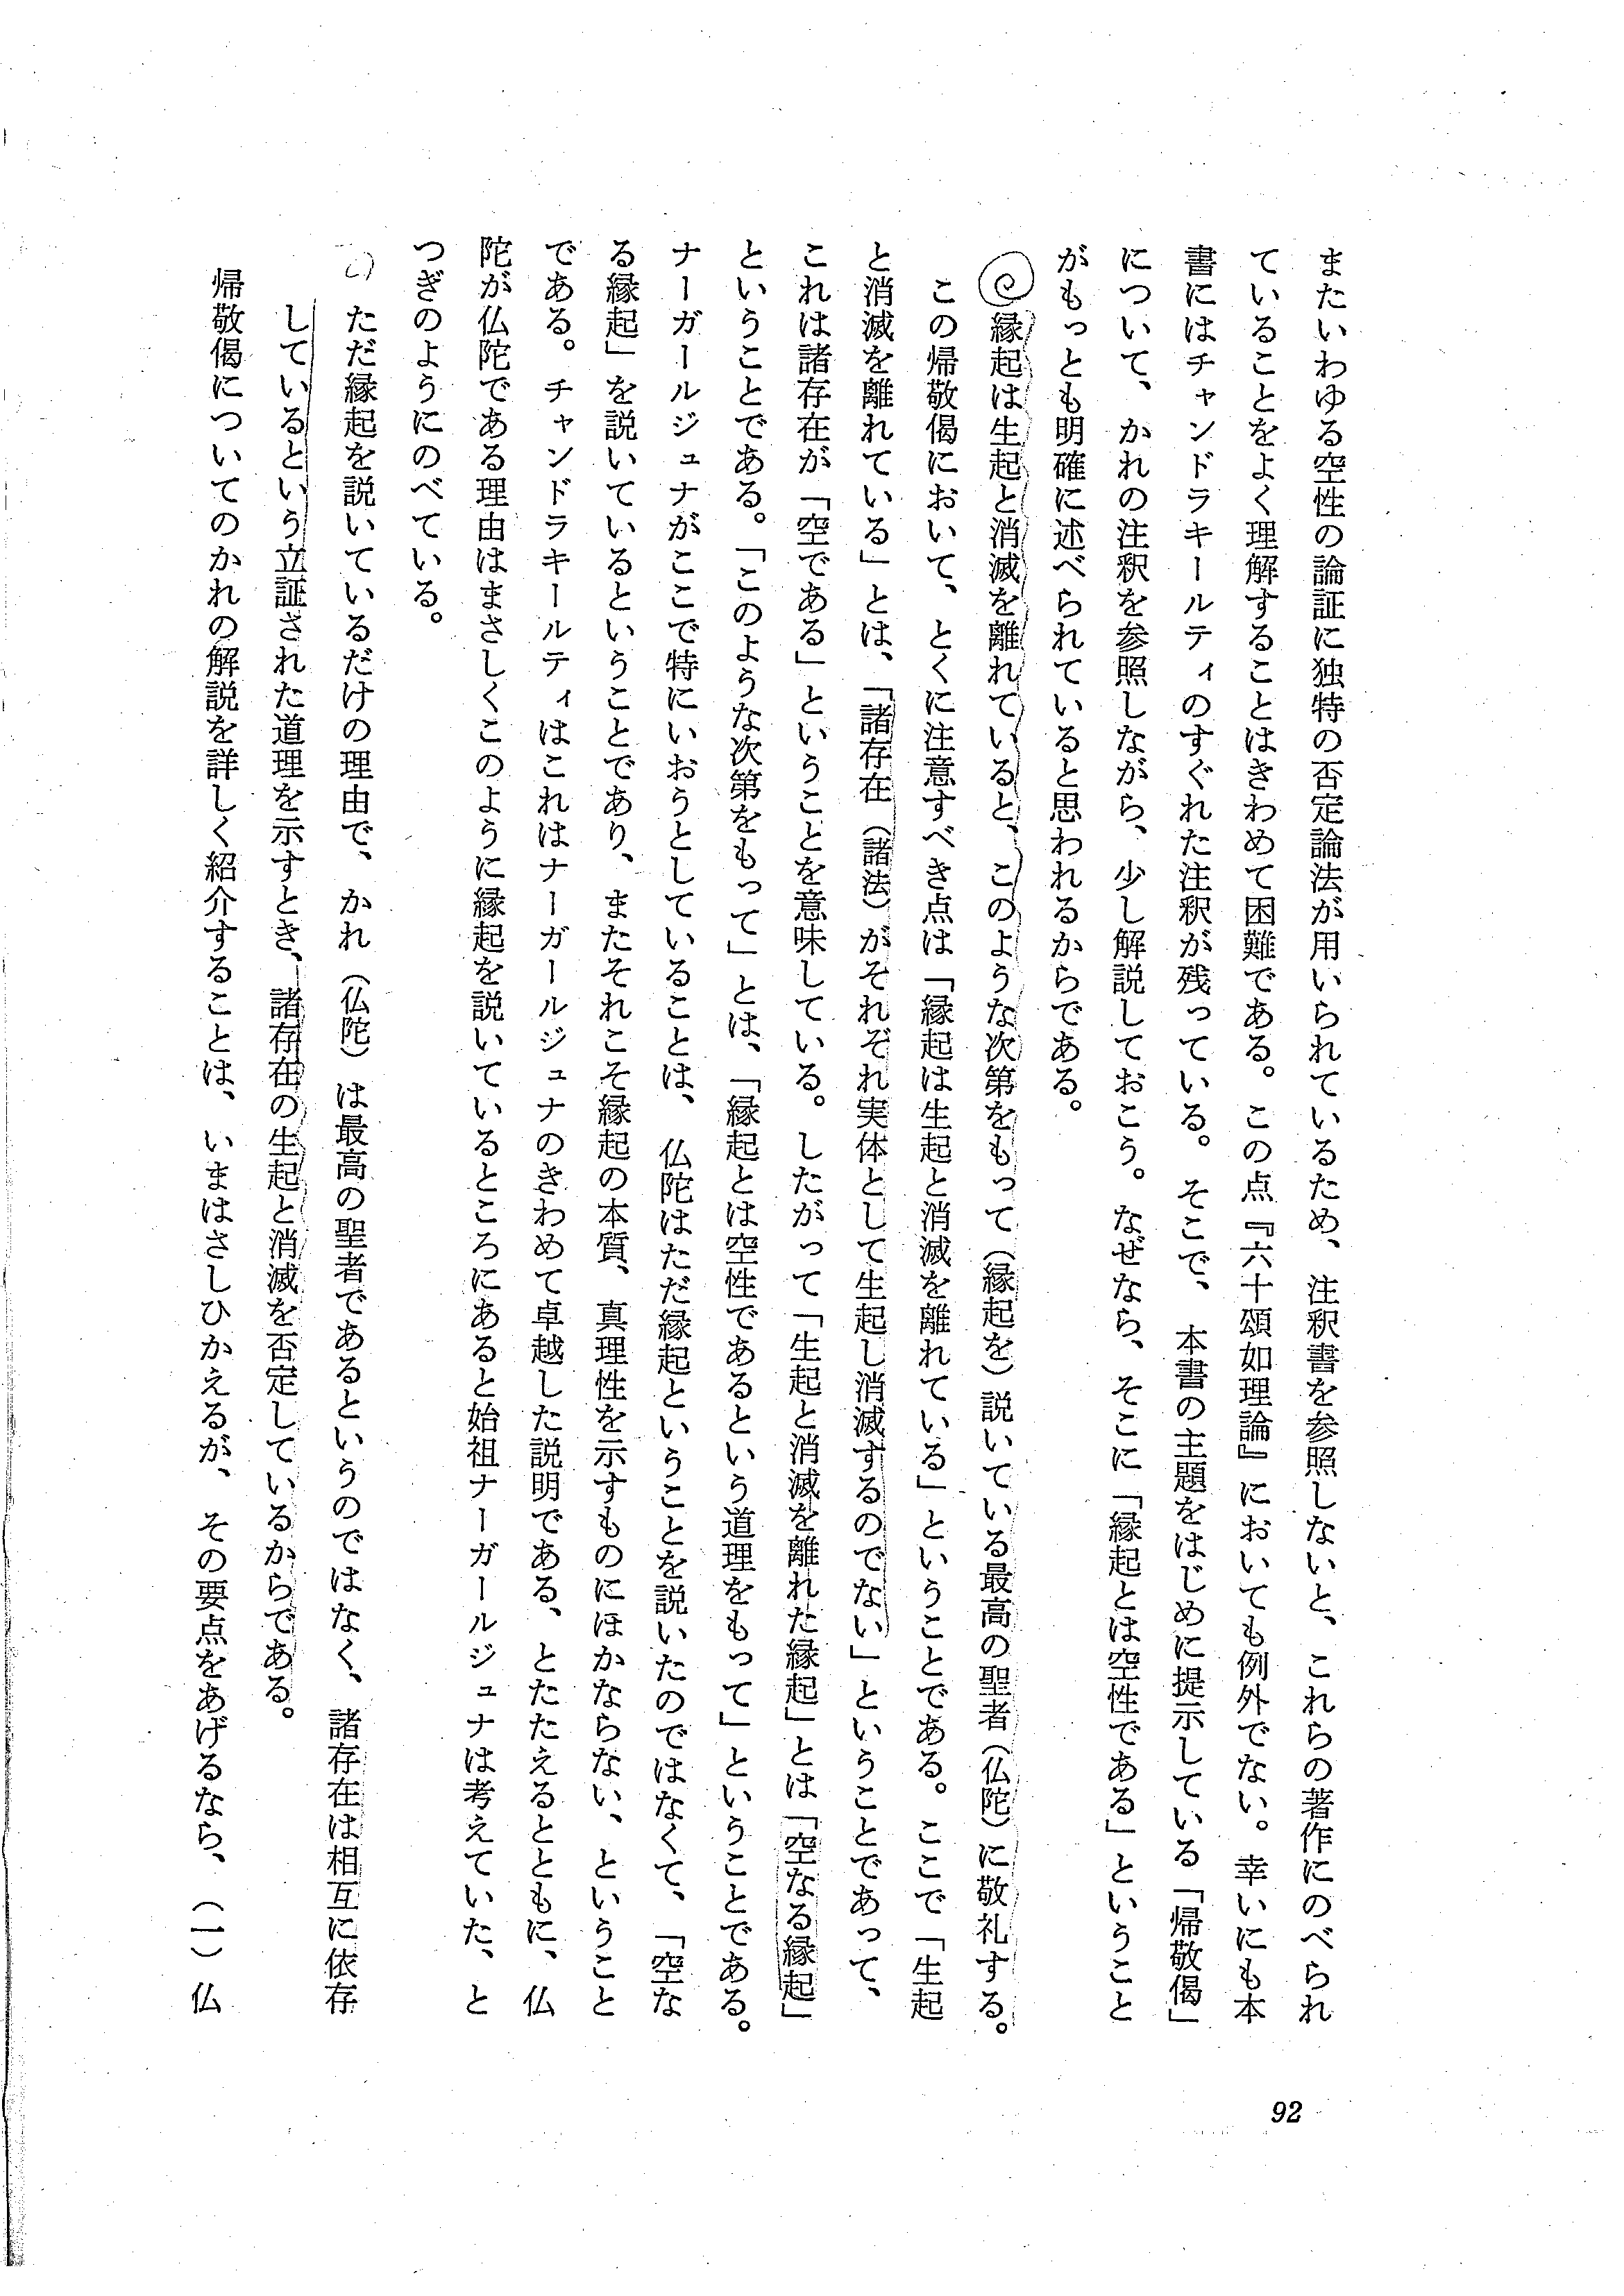 またいわゆる空性の論証に独特の否定論法が用いられているため、注釈書を参照しないと、これらの著作にのべられ
ていることをよく理解することはきわめて困難である。この点『六十頌如理論』においても例外でない。幸いにも本
書にはチャンドラキールティのすぐれた注釈が残っている。そこで、本書の主題をはじめに提示している「帰敬偈」
について、かれの注釈を参照しながら、少し解説しておこう。なぜなら、そこに「縁起とは空性である」ということ
がもっとも明確に述べられていると思われるからである。
縁起は生起と消滅を離れていると、このような次第をもって（縁起を）説いている最高の聖者（仏陀）に敬礼する。
この帰敬偈において、とくに注意すべき点は「縁起は生起と消滅を離れている」ということである。ここで「生起
と消滅を離れている」とは、「諸存在（諸法）がそれぞれ実体として生起し消滅するのでない」ということであって、
これは諸存在が「空である」ということを意味している。したがって「生起と消滅を離れた縁起」とは「空なる縁起」
ということである。「このような次第をもって」とは、「縁起とは空性であるという道理をもって」ということである。
ナーガールジュナがここで特にいおうとしていることは、仏陀はただ縁起ということを説いたのではなくて、「空な
る縁起」を説いているということであり、またそれこそ縁起の本質、真理性を示すものにほかならない、ということ
である。チャンドラキールティはこれはナーガールジュナのきわめて卓越した説明である、とたたえるとともに、仏
陀が仏陀である理由はまさしくこのように縁起を説いているところにあると始祖ナーガールジュナは考えていた、と
つぎのようにのべている。
ただ縁起を説いているだけの理由で、かれ（仏陀）は最高の聖者であるというのではなく、諸存在は相互に依存
しているという立証された道理を示すとき、諸存在の生起と消滅を否定しているからである。
帰敬偈についてのかれの解説を詳しく紹介することは、いまはさしひかえるが、その要点をあげるなら、（一）仏
92